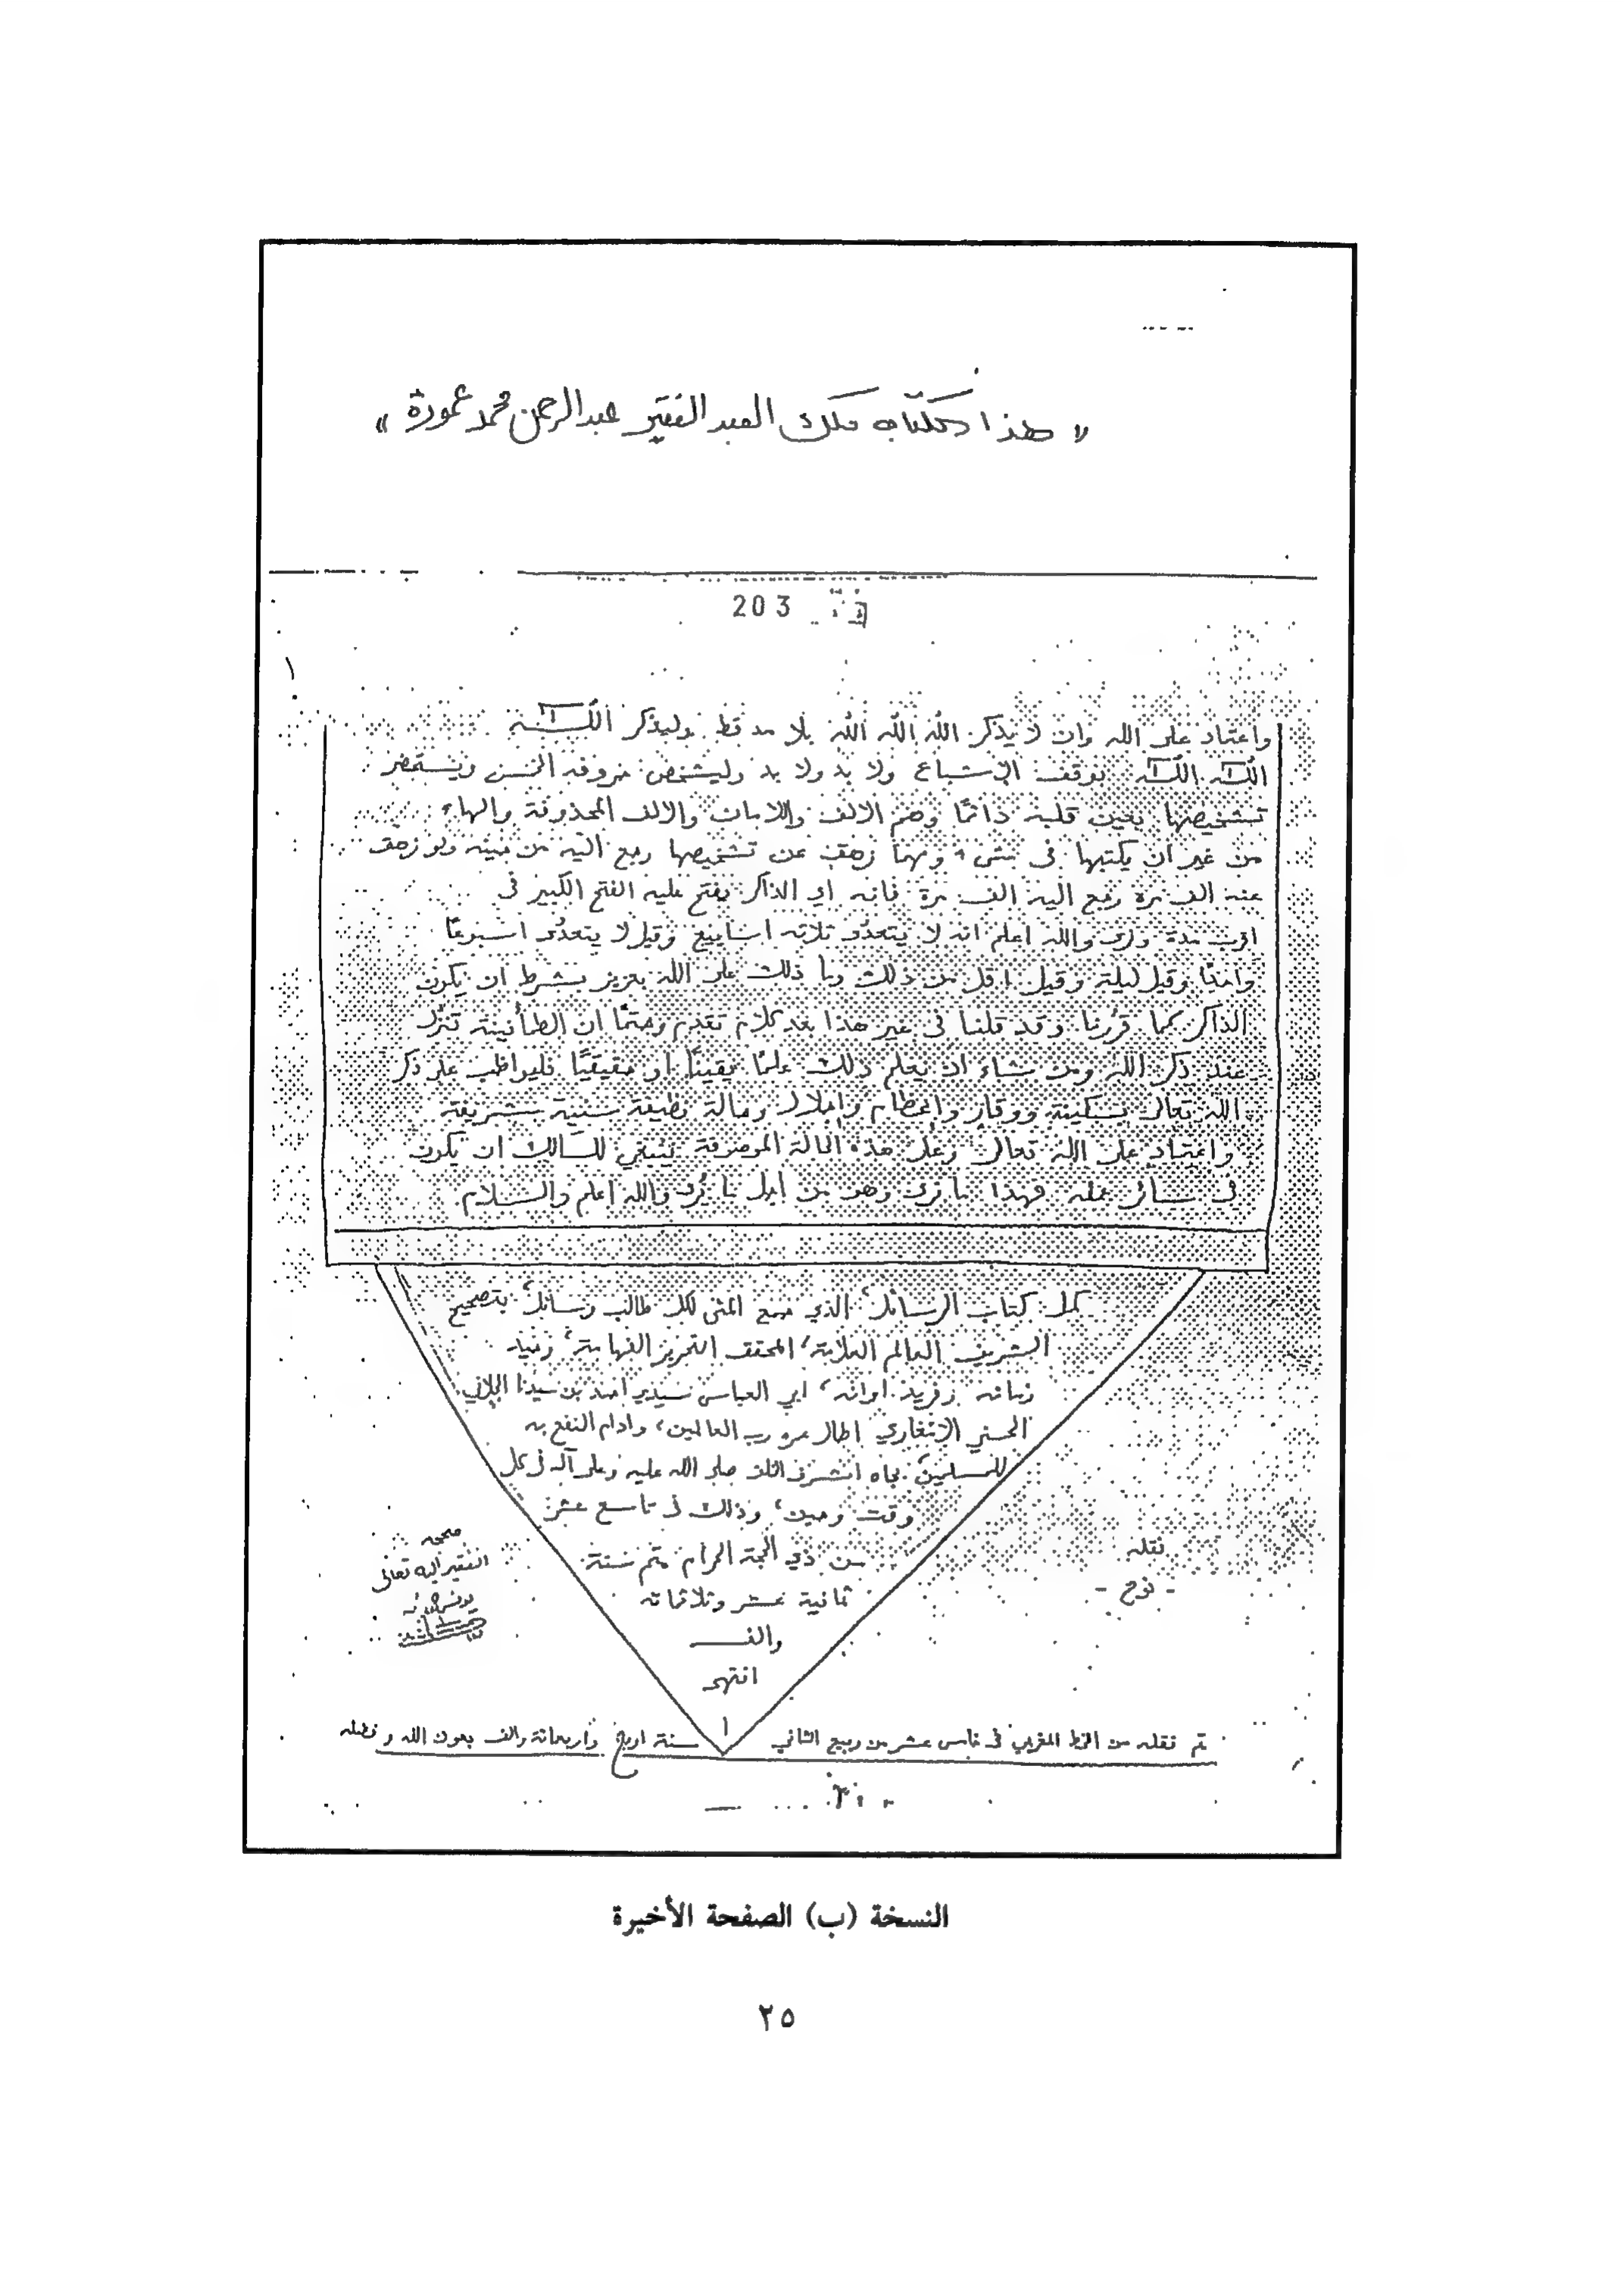 « هذا الكتاب ملك العبد الفقير عبد الرحمن محمد عمورة »
203
واعتماد على الله وان لا يذكر الله الله الله بلا مد قط وليذكر اللّٰه
اللّٰه اللّٰه بوقف الإشباع ولا بد ولا بد وليشخص حروفه الخمس ويستحضر
تشخيصها بعين قلبه دائمًا وهم الالف واللامان والالف المحذوفة والهاء
من غير ان يكتبها فى شىء ومهما زهق عن تشخيصها رجع اليه من حينه ولو زهق
عنه الف مرة رجع اليه الف مرة فانه اي الذاكر يفتح عليه الفتح الكبير فى
اقرب مدة ونرى والله اعلم انه لا يتعدّى ثلاثه اسابيع وقيل لا يتعدّى اسبوعًا
واحدًا وقيل ليلة وقيل اقل من ذلك وما ذلك على الله بعزيز بشرط ان يكون
الذاكر كما قررنا وقد قلنا فى غير هذا بعد كلام تقدم وحتمًا ان الطمأنينة تنزل
عند ذكر الله ومن شاء ان يعلم ذلك علمًا يقينًا او حقيقيًا فليواظب على ذكر
الله تعالى بسكينة ووقار واعظام واجلال وحالة نظيفة سنية شريفة
واعتماد على الله تعالى وعلى هذه الحالة الموصوفة ينبغي للسالك ان يكون
فى سائر عمله فهذا ما نرى وهو من اجل ما يُرى والله اعلم والسلام
كمل كتاب الرسائل، الذي جمع المنى لكل طالب وسائل، بتصحيح
الشريف العالم العلامة، المحقق النحرير الفهامة، وحيد
زمانه وفريد اوانه، ابي العباس سيدي احمد بن سيدنا الجلاني
الحسني الإمغاري اطال عمره رب العالمين، وادام النفع به
للمسلمين بجاه اشرف الخلق صلى الله عليه وعلى آله فى كل
وقت وحين، وذلك فى تاسع عشر
من ذي الحجة الحرام متم سنة
ثمانية عشر وثلاثمائه
والف
انتهى
نقله
- نوح -
صححه
الفقير اليه تعالى
تم نقله من الخط المغربي فى خامس عشر من ربيع الثاني سنة اربع واربعمائة والف بعون الله وفضله
النسخة (ب) الصفحة الأخيرة
٢٥